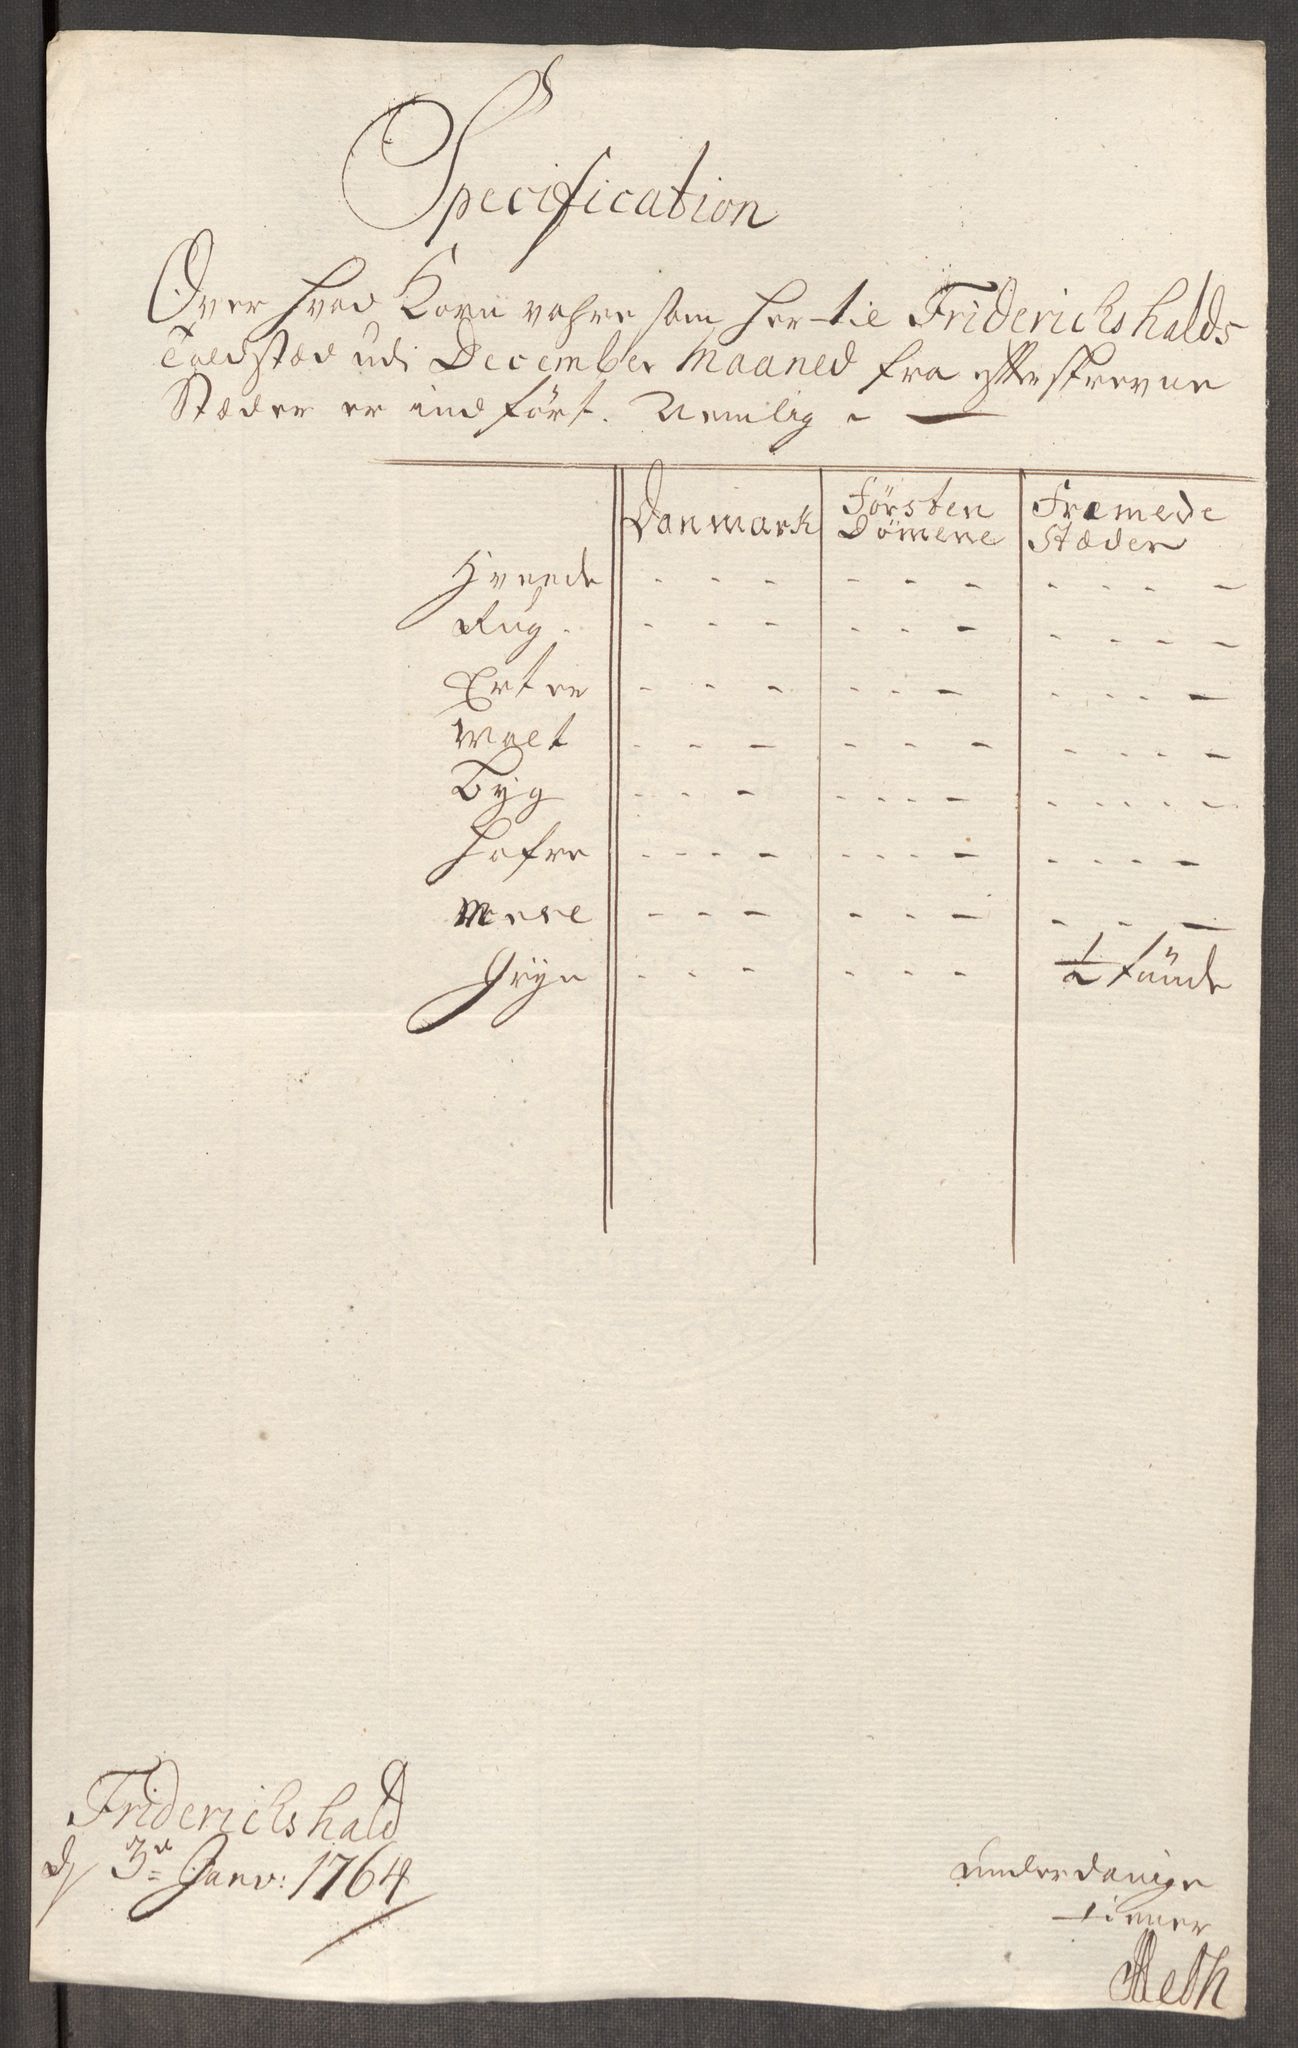 Specification
Over hvad Korn vahre som her til Friderichshalds
Toldstæd udi December Maaned fra efterskrevne
Stæder er indført. Nemlig
Danmark Førsten Dømene Fremede Stæder
Hvede - - - - - - - - - -
Rug - - - - - - - - - -
Erter - - - - - - - - - -
Malt - - - - - - - - - -
Byg - - - - - - - - - - - -
Hafre - - - - - - - - - - - -
Meel - - - - - - - - -
Gryn - - - - - - 1/2 tünde
Friderichshald
d 3e Janv: 1764
underdanige
tiener